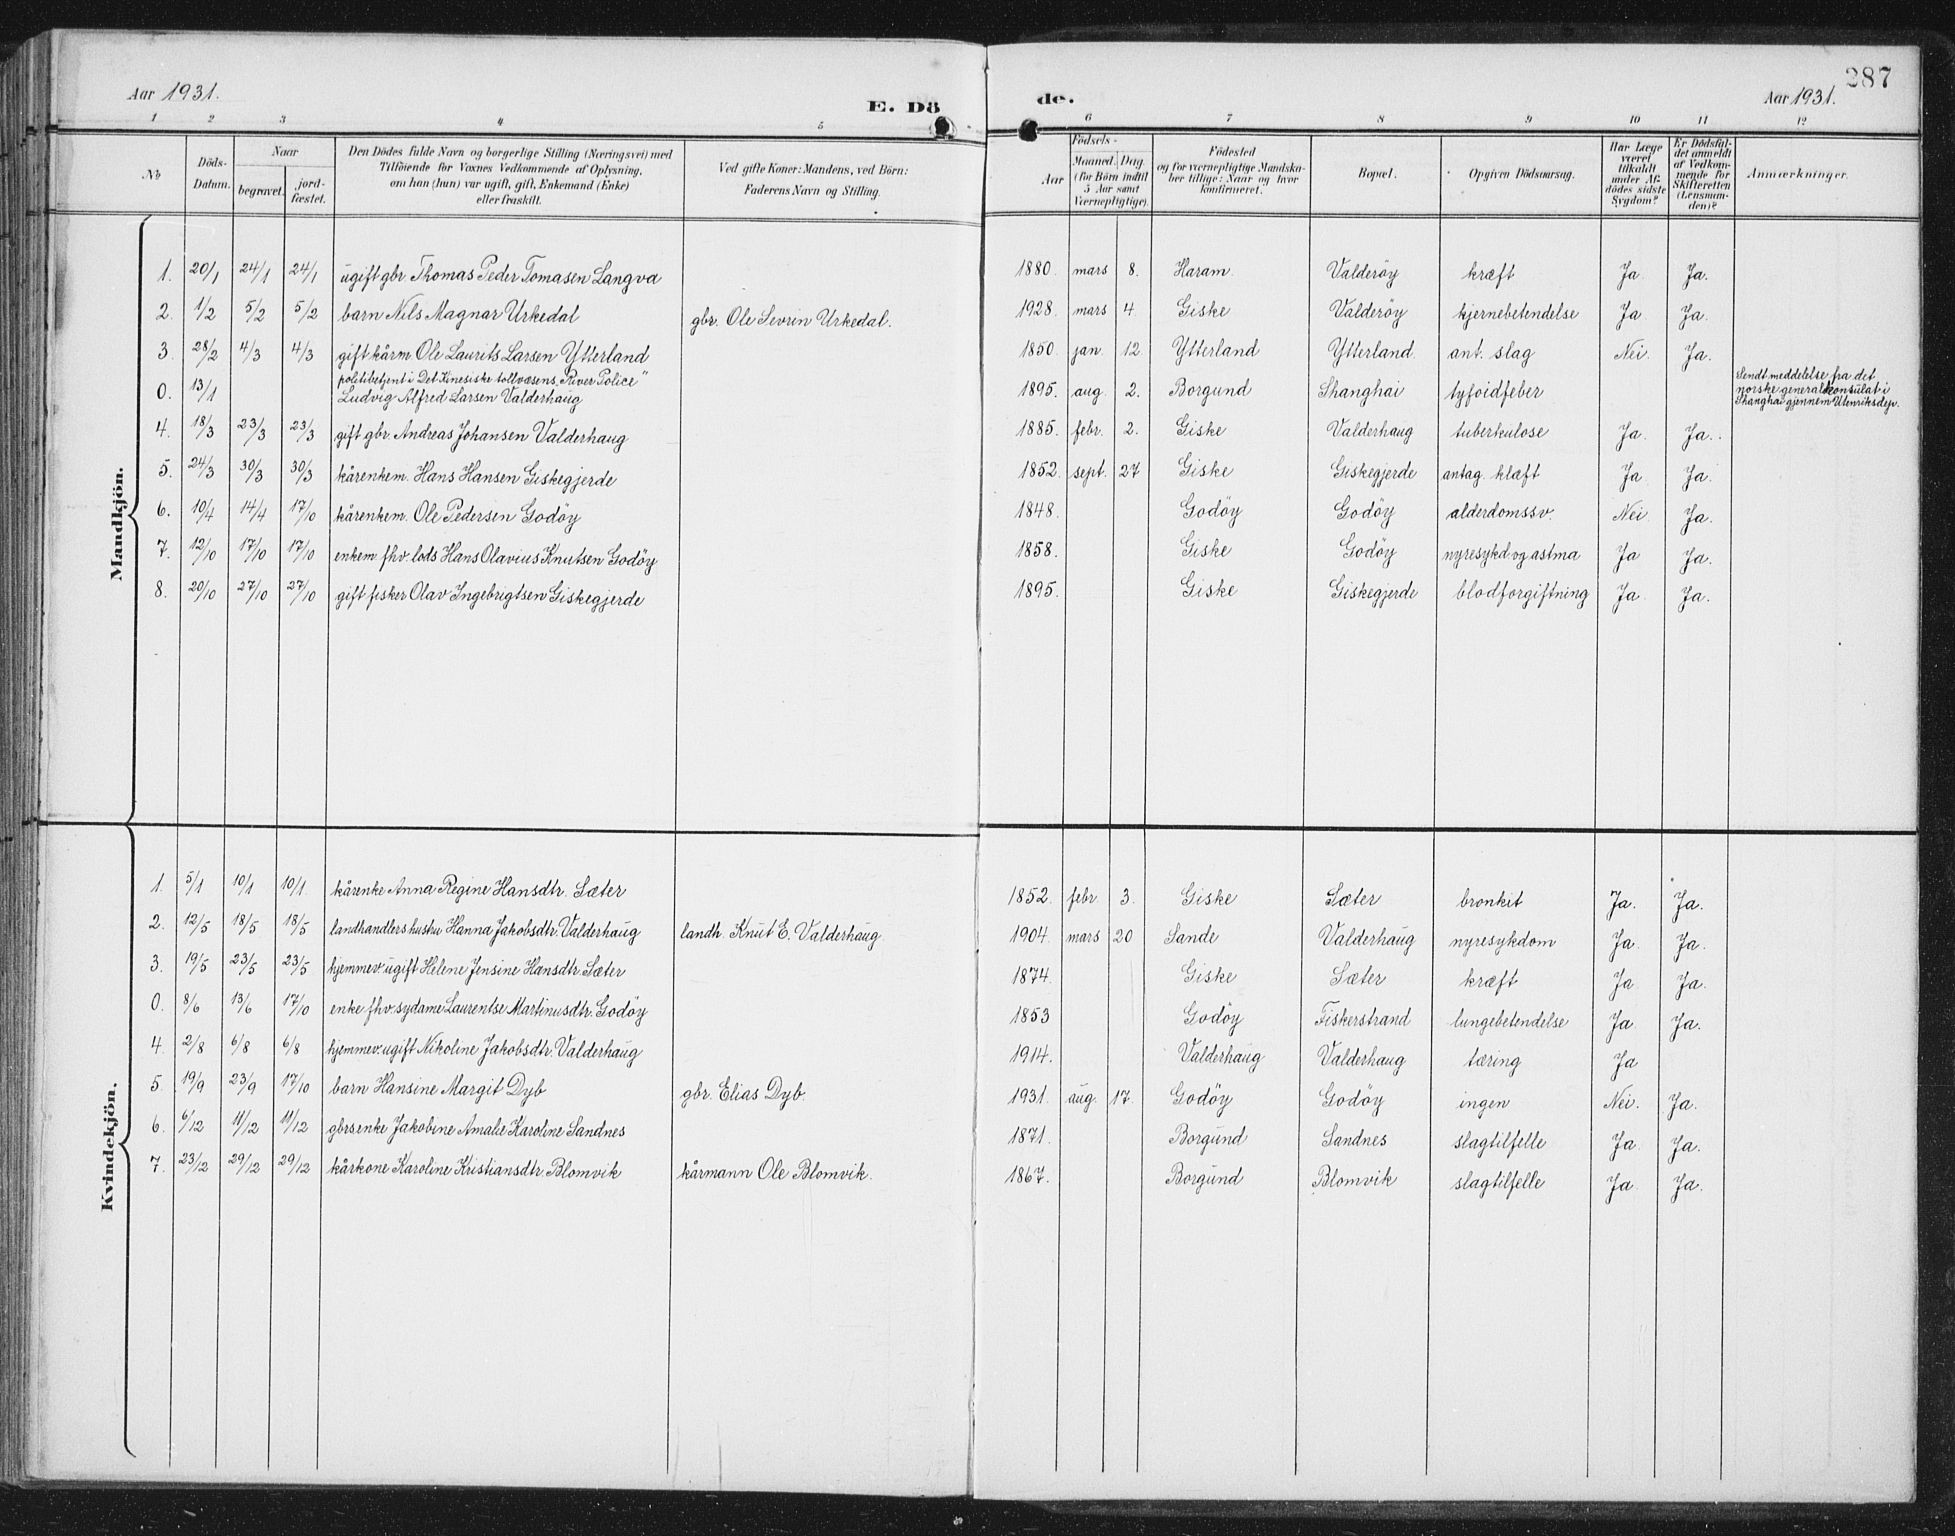 287
Aar 1931.
E. Dö
de.
Aar 1931.
1 2 3 4 5 6 7 8 9 10 11 12
No
Döds-
Datum.
Naar
begravet.
jord-
fæstet.
Den Dödes fulde Navn og borgerlige Stilling (Næringsvei) med
Tilföiende for Voxnes Vedkommende af Oplysning,
om han (hun) var ugift, gift, Enkemand (Enke)
eller fraskilt.
Ved gifte Koner: Mandens, ved Börn:
Faderens Navn og Stilling.
Födsels-
Aar
Maaned. Dag.
(for Börn indtil
5 Aar samt
Værnepligtige).
Födested
og for værnepligtige Mandska-
ber tillige: Naar og hvor
konfirmeret.
Bopæl.
Opgiven Dödsaarsag.
Har Læge
været
tilkaldt
under Af-
dödes sidste
Sygdom?
Er Dödsfal-
det anmeldt
af Vedkom-
mende for
Skifteretten
(Lensman-
den)?
Anmærkninger.
Mandkjön.
1. 20/1 24/1 24/1 ugift gbr. Thomas Peder Tomasen Langva 1880. mars 8. Haram. Valderöy kræft Ja Ja.
2. 1/2 5/2 5/2 barn Nils Magnar Urkedal gbr. Ole Sevrin Urkedal. 1928. mars 4. Giske Valderöy hjernebetendelse Ja Ja.
3. 28/2 4/3 4/3 gift kårm. Ole Laurits Larsen Ytterland 1850. jan. 12 Ytterland Ytterland. ant. slag Nei. Ja.
politibetjent i Det Kinesiske tollvæsens "River Police"
0. 13/1 Ludvig Alfred Larsen Valderhaug 1895. aug. 2. Borgund Shanghai tyfoidfeber
Sendt meddelelse fra det
norske generalkonsulat i
Shanghai gjennem Utenriksdep.
4. 18/3 23/3 23/3 gift gbr. Andreas Johansen Valderhaug 1885. febr. 2. Giske Valderhaug tuberkulose Ja. Ja.
5. 24/3 30/3 30/3 kårenkem. Hans Hansen Giskegjerde 1852. sept. 27 Giske Giskegjerde antag. kræft Ja Ja.
6. 10/4 14/4 17/10 kårenkem. Ole Pedersen Godöy 1848. Godöy Godöy alderdomssv. Nei Ja.
7. 12/10 17/10 17/10 enkem. fhv. lods Hans Olavius Knutsen Godöy 1858. Giske Godöy nyresykd. og astma Ja Ja.
8. 20/10 27/10 27/10 gift fisker Olav Ingebrigtsen Giskegjerde 1895. Giske Giskegjerde blodforgiftning Ja Ja.
Kvindekjön.
1. 5/1 10/1 10/1. kårenke Anna Regine Hansdtr. Sæter 1852. febr. 3. Giske Sæter bronkit Ja. Ja.
2. 12/5 18/5 18/5 landhandlers hustru Hanna Jakobsdtr. Valderhaug landh. Knut E. Valderhaug. 1904. mars 20 Sande Valderhaug nyresykdom Ja. Ja.
3. 19/5 23/5 23/5 hjemmev. ugift Helene Jensine Hansdtr. Sæter 1874. Giske Sæter kræft Ja Ja.
0. 8/6 13/6 17/10 enke fhv. sydame Laurentse Martinusdtr. Godöy 1853 Godöy Fiskerstrand lungebetendelse Ja Ja.
4. 2/8 6/8 6/8 hjemmev. ugift Nikoline Jakobsdtr. Valderhaug 1914. Valderhaug Valderhaug tæring Ja
5. 19/9 23/9 17/10 barn Hansine Margit Dyb gbr. Elias Dyb. 1931. aug. 17. Godöy Godöy ingen Nei. Ja.
6. 6/12 11/12 11/12 gbrsenke Jakobine Amalie Karoline Sandnes 1871. Borgund Sandnes slagtilfelle Ja. Ja.
7. 23/12 29/12 29/12 kårkone Karoline Kristiansdtr. Blomvik kårmann Ole Blomvik. 1867. Borgund Blomvik slagtilfelle Ja Ja.